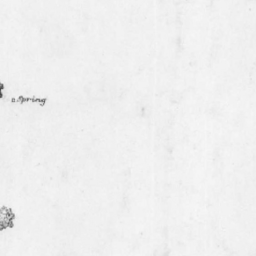 a Spring